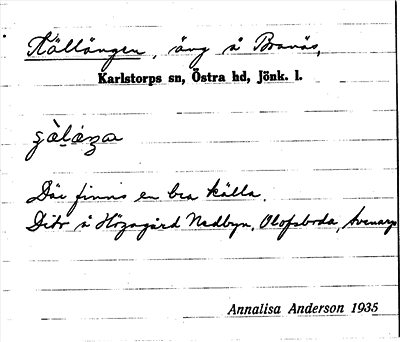 Källängen, äng å Branäs,
Karlstorps sn, Östra hd, Jönk. l.
Där finns en bra källa.
Dito å Högagärd Nedbyn, Olofsboda,
Annalisa Anderson 1935